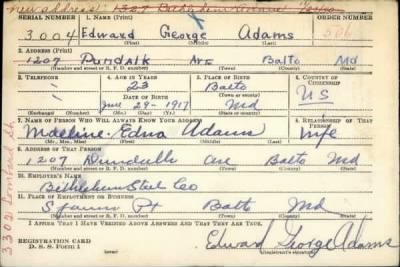 new address:
SERIAL NUMBER 1. NAME (Print) ORDER NUMBER
3004 Edward George Adams 506
(First) (Middle) (Last)
2. ADDRESS (Print)
1207 Dundalk Ave Balto Md
(Number and street or R. F. D. number) (Town) (County) (State)
3. TELEPHONE 4. AGE IN YEARS 5. PLACE OF BIRTH 6. COUNTRY OF CITIZENSHIP
23 Balto
DATE OF BIRTH (Town or county) U S
June 29 - 1917 Md
(Exchange) (Number) (Mo.) (Day) (Yr.) (State or country)
7. NAME OF PERSON WHO WILL ALWAYS KNOW YOUR ADDRESS 8. RELATIONSHIP OF THAT PERSON
Madeline Edna Adams Wife
(Mr., Mrs., Miss) (First) (Middle) (Last)
9. ADDRESS OF THAT PERSON
1207 Dundalk Ave Balto Md
(Number and street or R. F. D. number) (Town) (County) (State)
10. EMPLOYER'S NAME
Bethlehem Steel Co
11. PLACE OF EMPLOYMENT OR BUSINESS
Sparrows Pt Balto Md
(Number and street or R. F. D. number) (Town) (County) (State)
I AFFIRM THAT I HAVE VERIFIED ABOVE ANSWERS AND THAT THEY ARE TRUE.
REGISTRATION CARD
D. S. S. FORM 1
Edward George Adams
(Registrant's signature)
3302 Lombard St